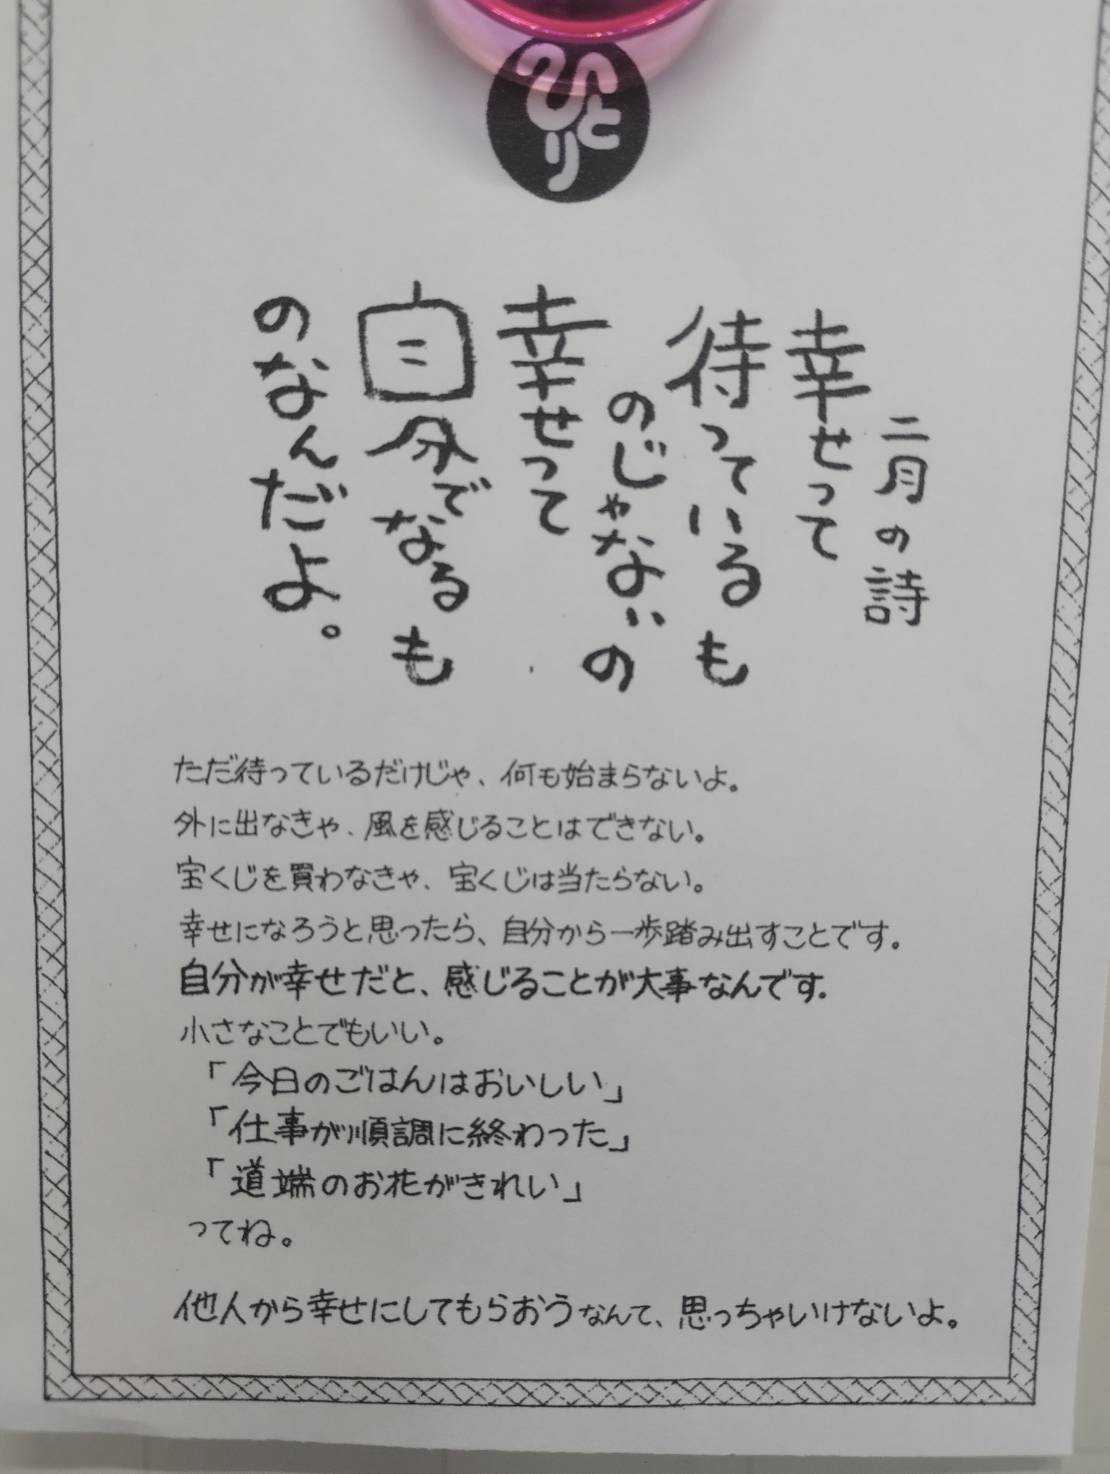 ひとり
二月の詩
幸せって
待っているも
のじゃないの
幸せって
自分でなるも
のなんだよ。
ただ待っているだけじゃ、何も始まらないよ。
外に出なきゃ、風を感じることはできない。
宝くじを買わなきゃ、宝くじは当たらない。
幸せになろうと思ったら、自分から一歩踏み出すことです。
自分が幸せだと、感じることが大事なんです。
小さなことでもいい。
「今日のごはんはおいしい」
「仕事が順調に終わった」
「道端のお花がきれい」
ってね。
他人から幸せにしてもらおうなんて、思っちゃいけないよ。